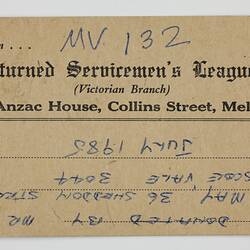 n... MV. 132
turned Servicemen's League
(Victorian Branch)
Anzac House, Collins Street, Mel
DONATED BY MR
MAY 36
SCOE VALE 3044
JULY 1985